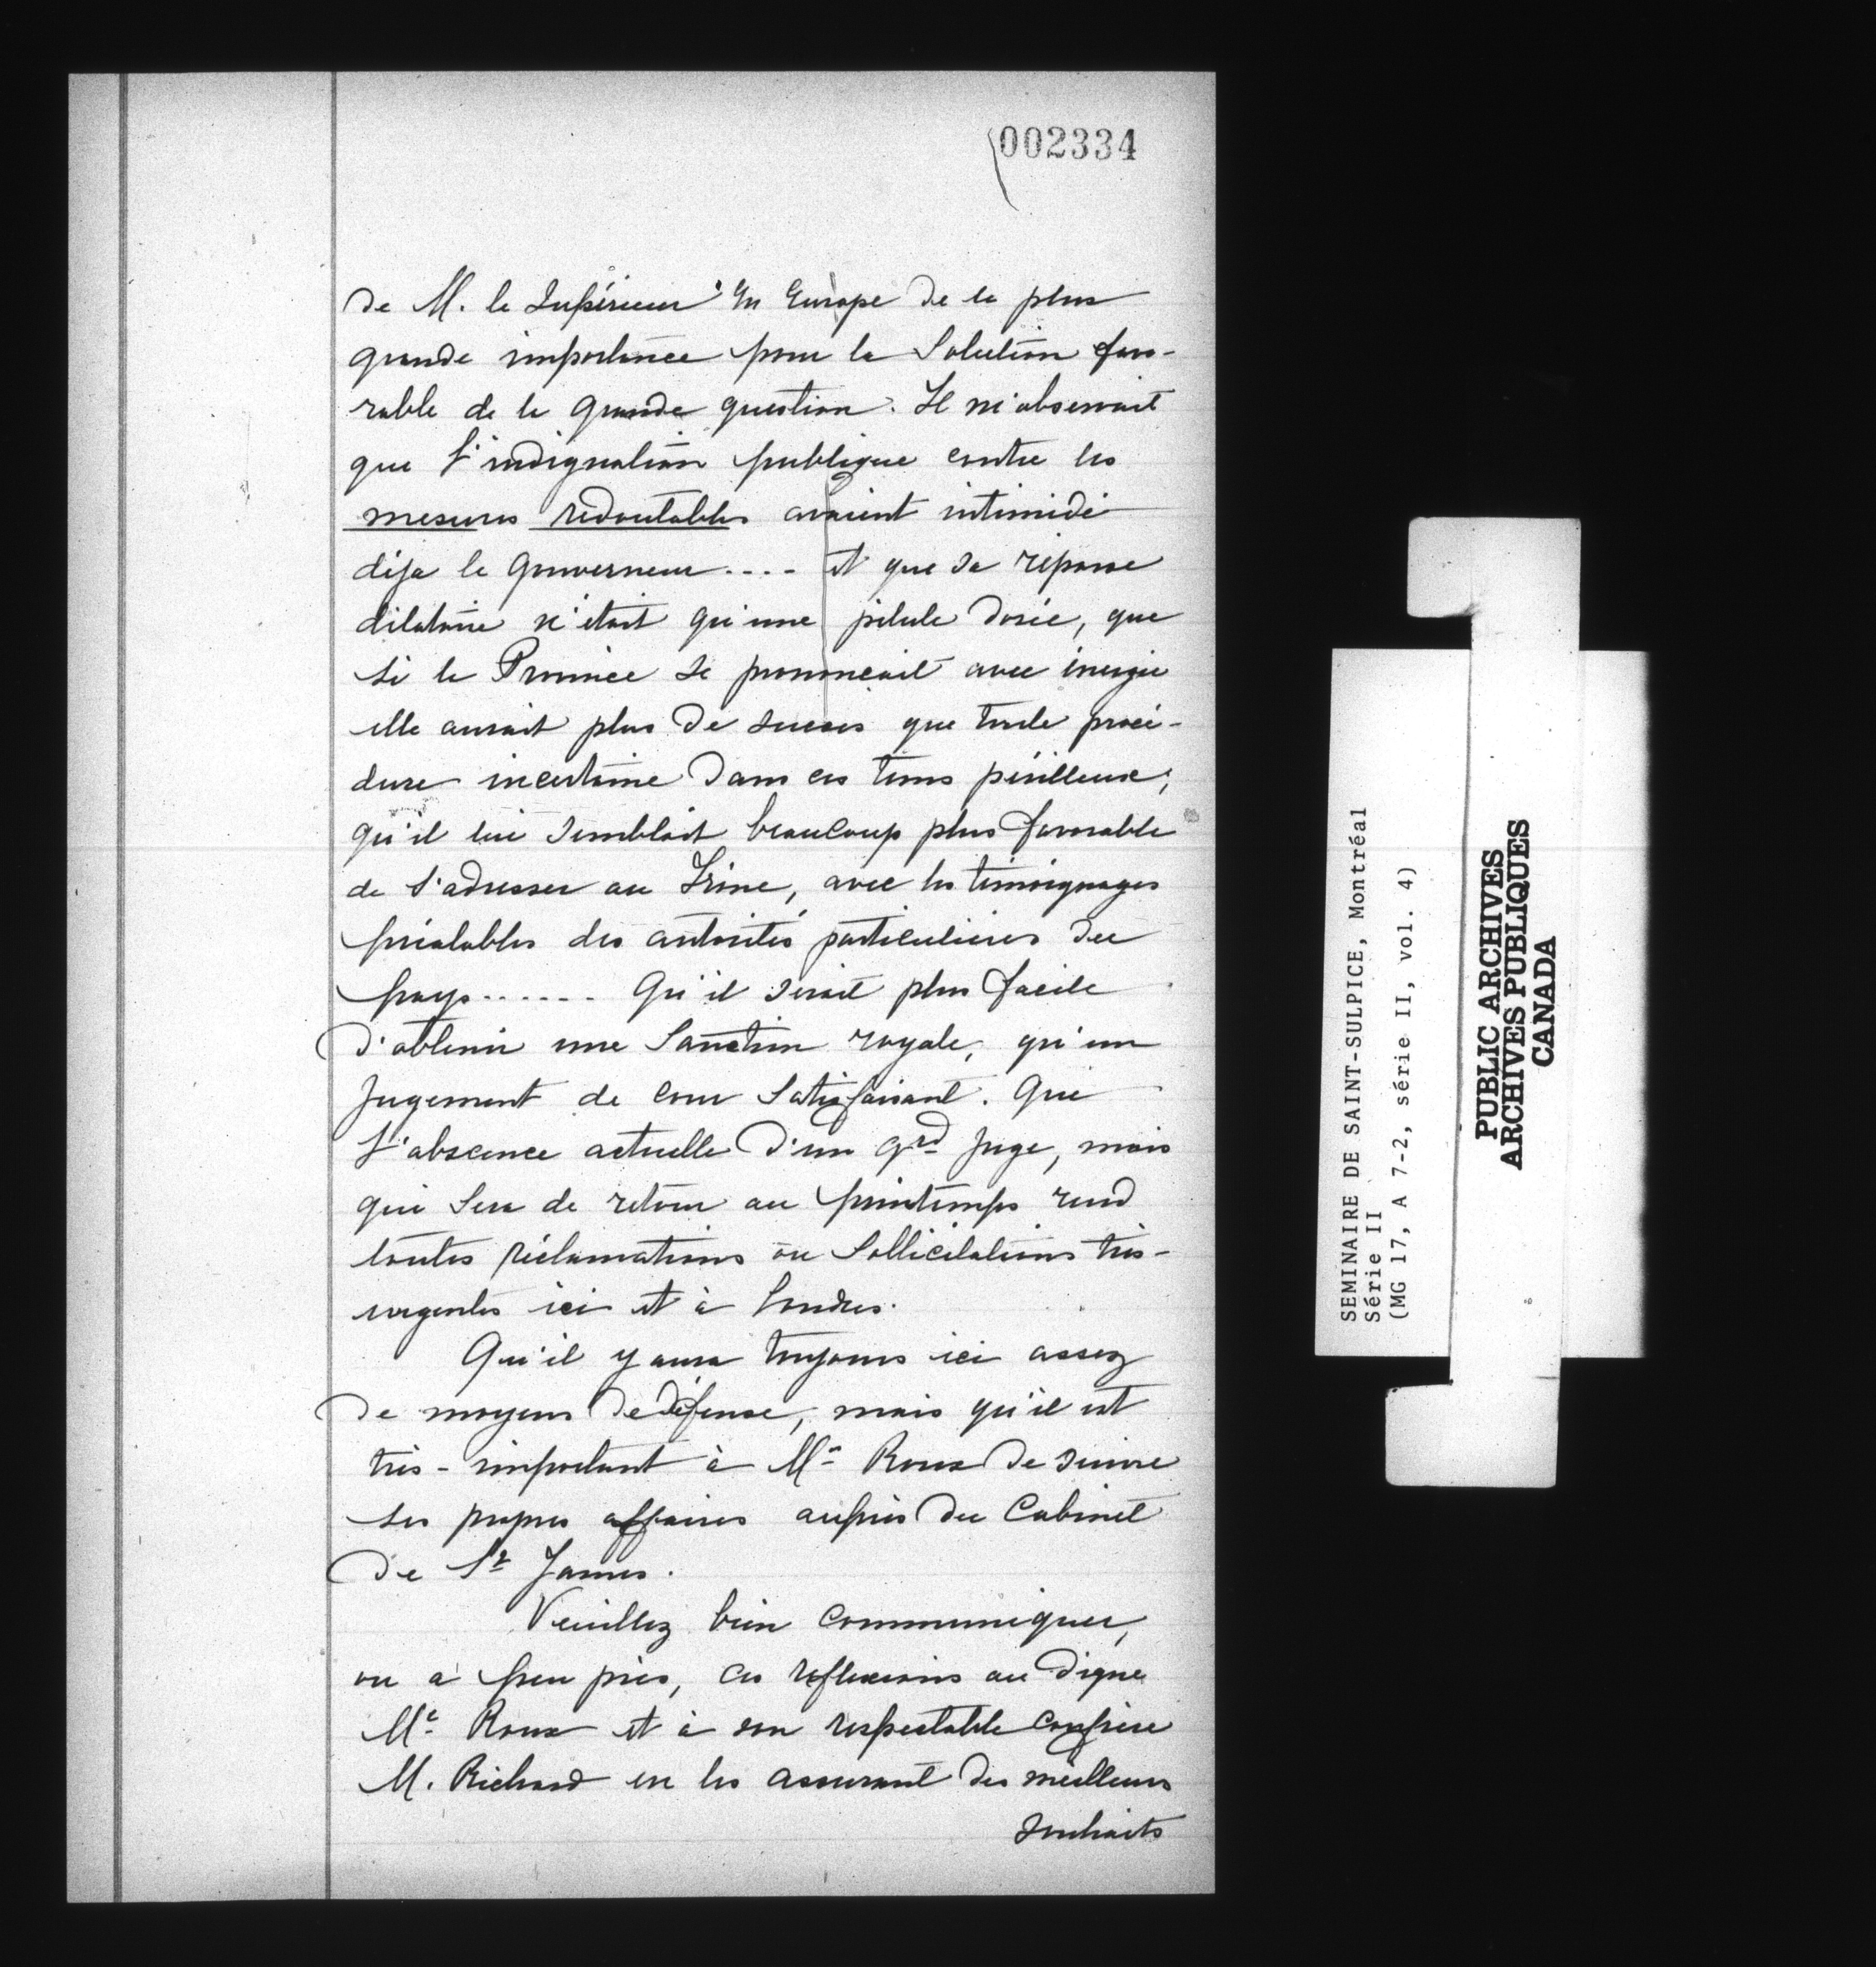 002334
de M. le Supérieur en Europe de la plus
grande importance pour la Solution favo-
rable de la grande question. Il m'observait
que l'indignation publique contre les
mesures redoutables avaient intimidé
déja le Gouverneur.... et que sa réponse
dilatoire n'était qu'une pilule dorée, que
si la Province se prononcait avec énergie
elle aurait plus de succes que toute procé-
dure incertaine dans ces tems périlleux;
qu'il lui semblait beaucoup plus favorable
de s'adresser au Trône, avec les témoignages
préalables des autorités particulières du
pays...... Qu'il serait plus facile
d'obtenir une Sanction royale, qu'un
jugement de cour Satisfaisant. Que
l'abscence actuelle d'un grd juge, mais
qui Sera de retour au printemps rend
toutes réclamations ou Sollicitations très-
urgentes ici et à Londres.
Qu'il y aura toujours ici assez
de moyens de défense, mais qu'il est
très-important à Mr Roux de suivre
ses propres affaires auprès du Cabinet
de St James.
Veuillez bien communiquer,
ou a peu près, ces réflexions au digne
Mr Roux et à son respectable confrère
M. Richard en les assurant des meilleurs
souhaits
SEMINAIRE DE SAINT-SULPICE, Montréal
Série II
(MG 17, A 7-2, série II, vol. 4)
PUBLIC ARCHIVES
ARCHIVES PUBLIQUES
CANADA